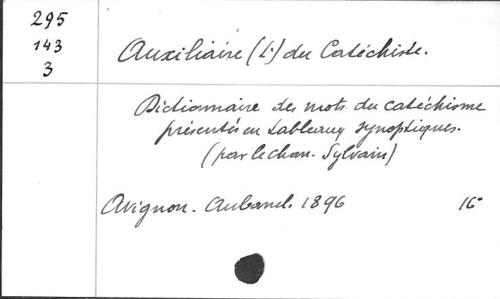 295
143
3
Auxiliaire (L') du Catéchiste.
Dictionnaire des mots du catéchisme
présentés en tableaux synoptiques.
(par le chan. Sylvain)
Avignon. Aubanel. 1896 16°